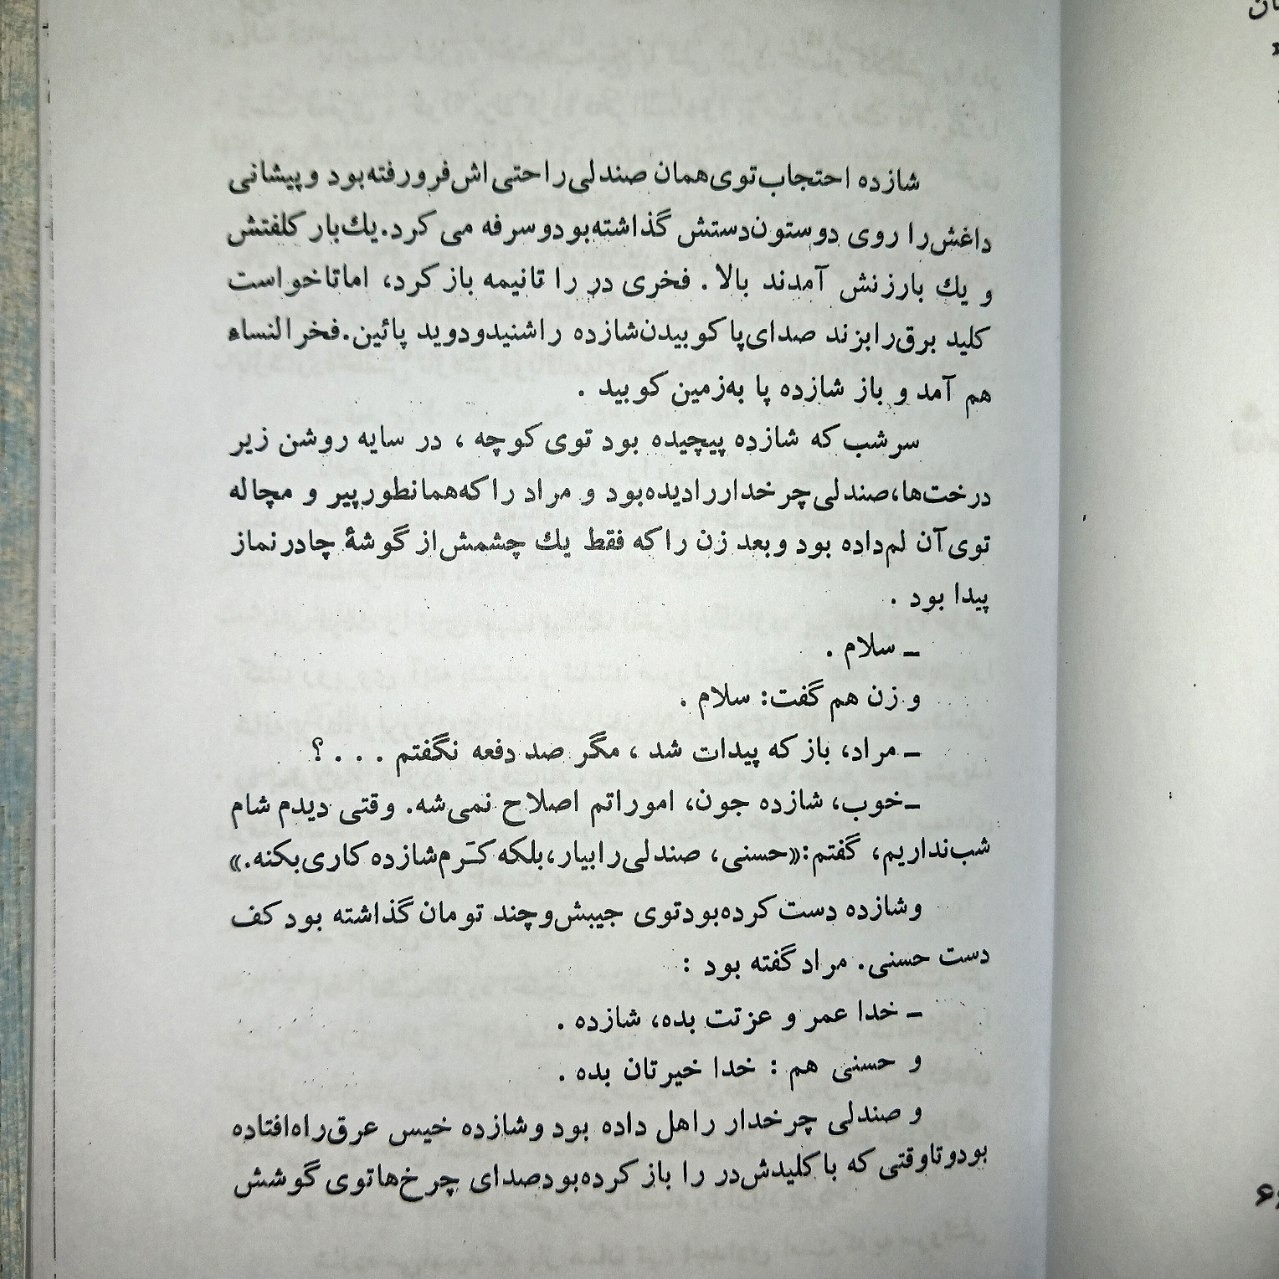 شازده احتجاب توی همان صندلی راحتی اش فرو رفته بود و پیشانی
داغش را روی دو ستون دستش گذاشته بود و سرفه می کرد. یك بار كلفتش
و یك بار زنش آمدند بالا. فخری در را تا نیمه باز کرد، اما تا خواست
کلید برق را بزند صدای پا کوبیدن شازده را شنید و دوید پائین. فخرالنساء
هم آمد و باز شازده پا به زمین کوبید .
سر شب که شازده پیچیده بود توی کوچه ، در سایه روشن زیر
درخت ها، صندلی چرخدار را دیده بود و مراد را که همانطور پیر و مچاله
توی آن لم داده بود و بعد زن را که فقط یك چشمش از گوشهٔ چادر نماز
پیدا بود .
ـ سلام .
و زن هم گفت: سلام .
ـ مراد، باز که پیدات شد ، مگر صد دفعه نگفتم . . . ؟
ـ خوب، شازده جون، اموراتم اصلاح نمی شه. وقتی دیدم شام
شب نداریم، گفتم: «حسنی، صندلی را بیار، بلکه کَرَم شازده کاری بکنه.»
و شازده دست کرده بود توی جیبش و چند تومان گذاشته بود کف
دست حسنی. مراد گفته بود :
ـ خدا عمر و عزتت بده، شازده .
و حسنی هم : خدا خیرتان بده .
و صندلی چرخدار را هل داده بود و شازده خیس عرق راه افتاده
بود و تا وقتی که با کلیدش در را باز کرده بود صدای چرخ ها توی گوشش